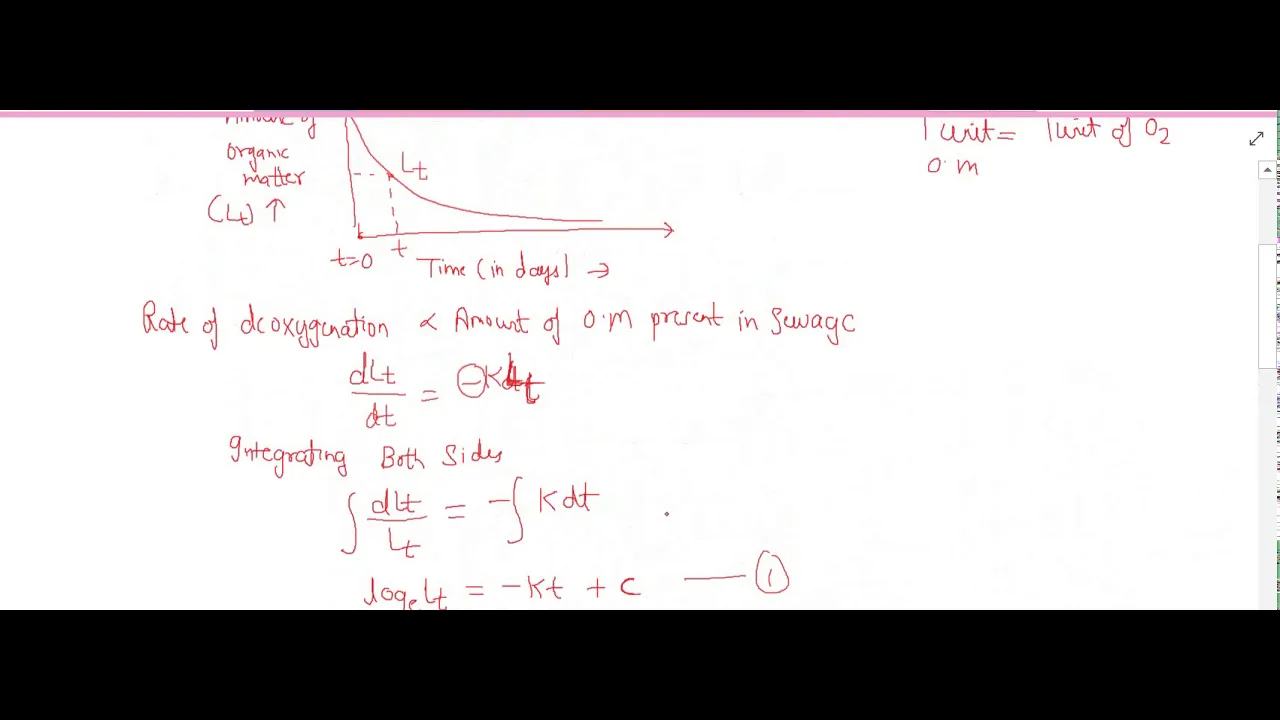 Amount of
organic
matter
(Lt) ↑
Lt
t=0
t
Time (in days) →
1 unit = 1 unit of O2
O.M
Rate of deoxygenation ∝ Amount of O.M present in Sewage
dLt/dt = -KLt
Integrating Both Sides
∫ dLt/Lt = -∫ K dt
loge Lt = -Kt + C —— 1